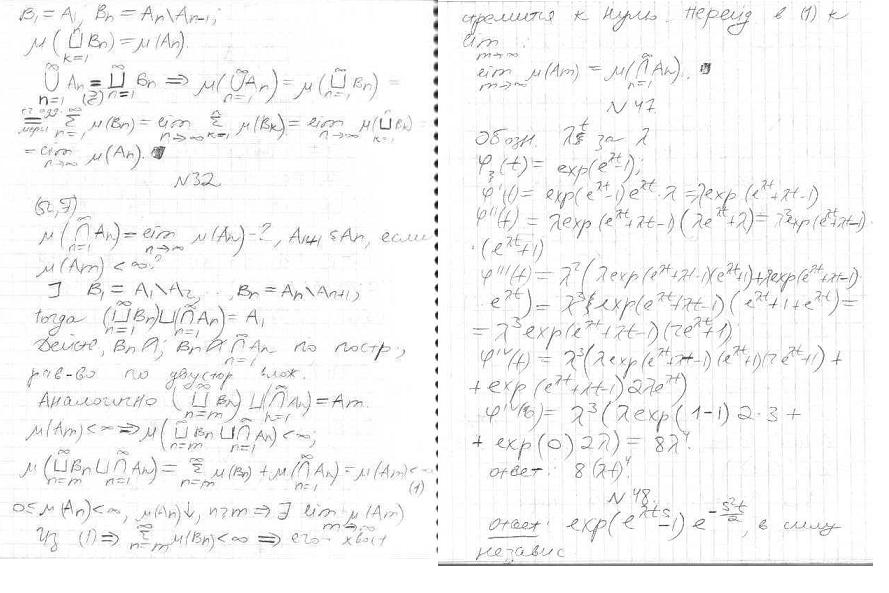 B₁ = A₁, Bₙ = Aₙ\Aₙ₋₁;
μ(⊔ₖ₌₁ⁿ Bₙ) = μ(Aₙ).
⋃ₙ₌₁^∞ Aₙ = ⊔ₙ₌₁^∞ Bₙ ⟹ μ(⋃ₙ₌₁^∞ Aₙ) = μ(⊔ₙ₌₁^∞ Bₙ) =
= Σₙ₌₁^∞ μ(Bₙ) = lim_{n→∞} Σₖ₌₁ⁿ μ(Bₖ) = lim_{n→∞} μ(⊔ₖ₌₁ⁿ Bₖ) =
= lim_{n→∞} μ(Aₙ).
N32
μ(⋂ₙ₌₁^∞ Aₙ) = lim_{n→∞} μ(Aₙ) - ?, Aₙ₊₁ ⊆ Aₙ, если
μ(Aₘ) < ∞?
∃ B₁ = A₁\A₂, .., Bₙ = Aₙ\Aₙ₊₁;
тогда (⊔ₙ₌₁^∞ Bₙ) ⊔ (⋂ₙ₌₁^∞ Aₙ) = A₁
Действ, Bₙ ∩; Bₙ ⋂ₙ₌₁^∞ Aₙ по постр.,
рав-во по двустор влож.
Аналогично (⊔ₙ₌ₘ^∞ Bₙ) ⊔ (⋂ₙ₌₁^∞ Aₙ) = Aₘ.
μ(Aₘ) < ∞ ⟹ μ(⊔ₙ₌ₘ^∞ Bₙ ⊔ ⋂ₙ₌₁^∞ Aₙ) < ∞;
μ(⊔ₙ₌ₘ^∞ Bₙ ⊔ ⋂ₙ₌₁^∞ Aₙ) = Σₙ₌ₘ^∞ μ(Bₙ) + μ(⋂ₙ₌₁^∞ Aₙ) = μ(Aₘ) < ∞
(1)
0 ≤ μ(Aₙ) < ∞, μ(Aₙ)↓, n ≥ m ⟹ ∃ lim_{m→∞} μ(Aₘ)
Из (1) ⟹ Σₙ₌ₘ^∞ μ(Bₙ) < ∞ ⟹ его хвост
стремится к нулю. Перейд в (1) к
lim_{m→∞} :
lim_{m→∞} μ(Aₘ) = μ(⋂ₙ₌₁^∞ Aₙ).
N47
обозн. за λ
φ_ξ(t) = exp(e^{λt}-1);
φ'(t) = exp(e^{λt}-1)e^{λt}·λ = λexp(e^{λt}+λt-1)
φ''(t) = λexp(e^{λt}+λt-1)(λe^{λt}+λ) = λ²exp(e^{λt}+λt-1)·
·(e^{λt}+1)
φ'''(t) = λ²(λexp(e^{λt}+λt-1)(e^{λt}+1)+λexp(e^{λt}+λt-1)·
·e^{λt}) = λ³exp(e^{λt}+λt-1)(e^{λt}+1+e^{λt}) =
= λ³exp(e^{λt}+λt-1)(2e^{λt}+1)
φ''''(t) = λ³(λexp(e^{λt}+λt-1)(e^{λt}+1)(2e^{λt}+1) +
+ exp(e^{λt}+λt-1)2λe^{λt})
φ''''(0) = λ³(λexp(1-1)2·3 +
+ exp(0)2λ) = 8λ⁴.
ответ: 8(λt)⁴.
N48.
ответ: exp(e^{λts}-1)e^{-s²t/2}, в силу
независ